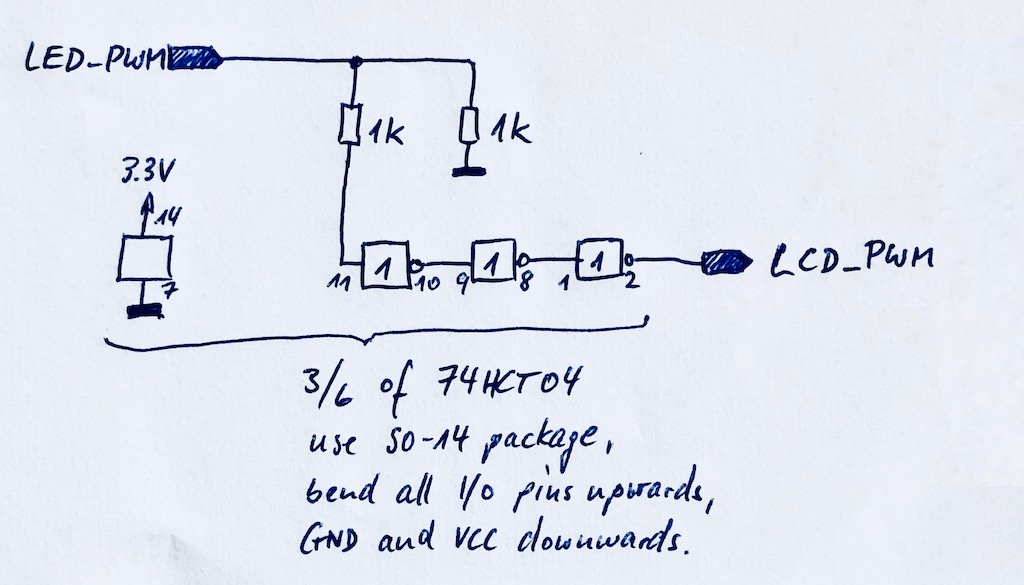 LED_PWM
1k
1k
3.3V
14
7
11
1
10
9
1
8
1
1
2
LCD_PWM
3/6 of 74HCT04
use SO-14 package,
bend all I/O pins upwards,
GND and VCC downwards.